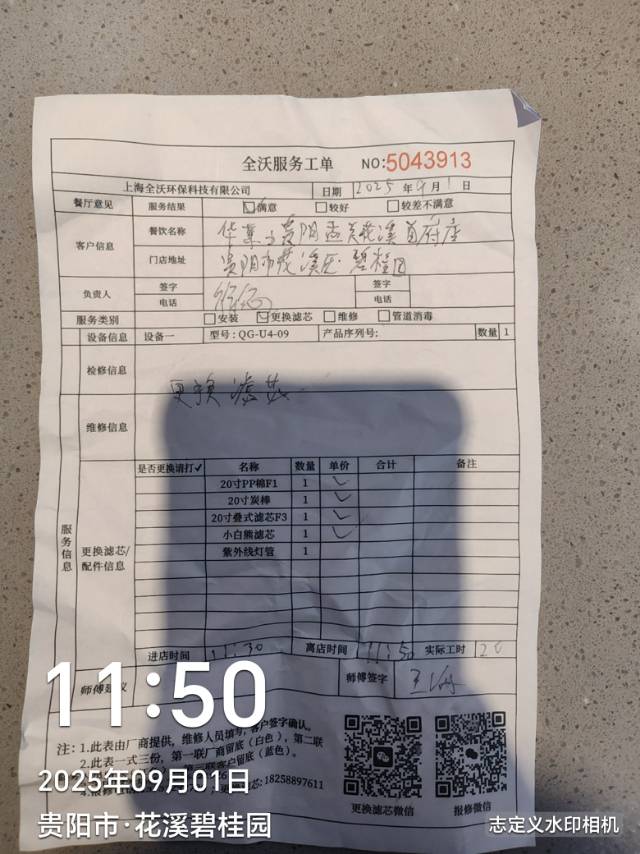 全沃服务工单 NO:5043913
上海全沃环保科技有限公司 日期 2025 年 9 月 1 日
餐厅意见 服务结果 满意 较好 较差不满意
客户信息 餐饮名称
门店地址 贵阳市花溪区 碧桂园
负责人 签字 签字
电话 电话
服务类别 安装 更换滤芯 维修 管道消毒
设备信息 设备一 型号: QG-U4-09 产品序列号: 数量 1
检修信息 更换滤芯
维修信息
服务信息
更换滤芯/配件信息
是否更换请打✓ 名称 数量 单价 合计 备注
20寸PP棉F1 1 ✓
20寸炭棒 1 ✓
20寸叠式滤芯F3 1 ✓
小白熊滤芯 1 ✓
紫外线灯管 1
进店时间 11:30 离店时间 11:50 实际工时 20
师傅建议 师傅签字
注: 1.此表由厂商提供, 维修人员填写, 客户签字确认。
2.此表一式三份, 第一联厂商留底(白色), 第二联
客户留底(蓝色)。
18258897611
更换滤芯微信 报修微信
11:50
2025年09月01日
贵阳市·花溪碧桂园
志定义水印相机